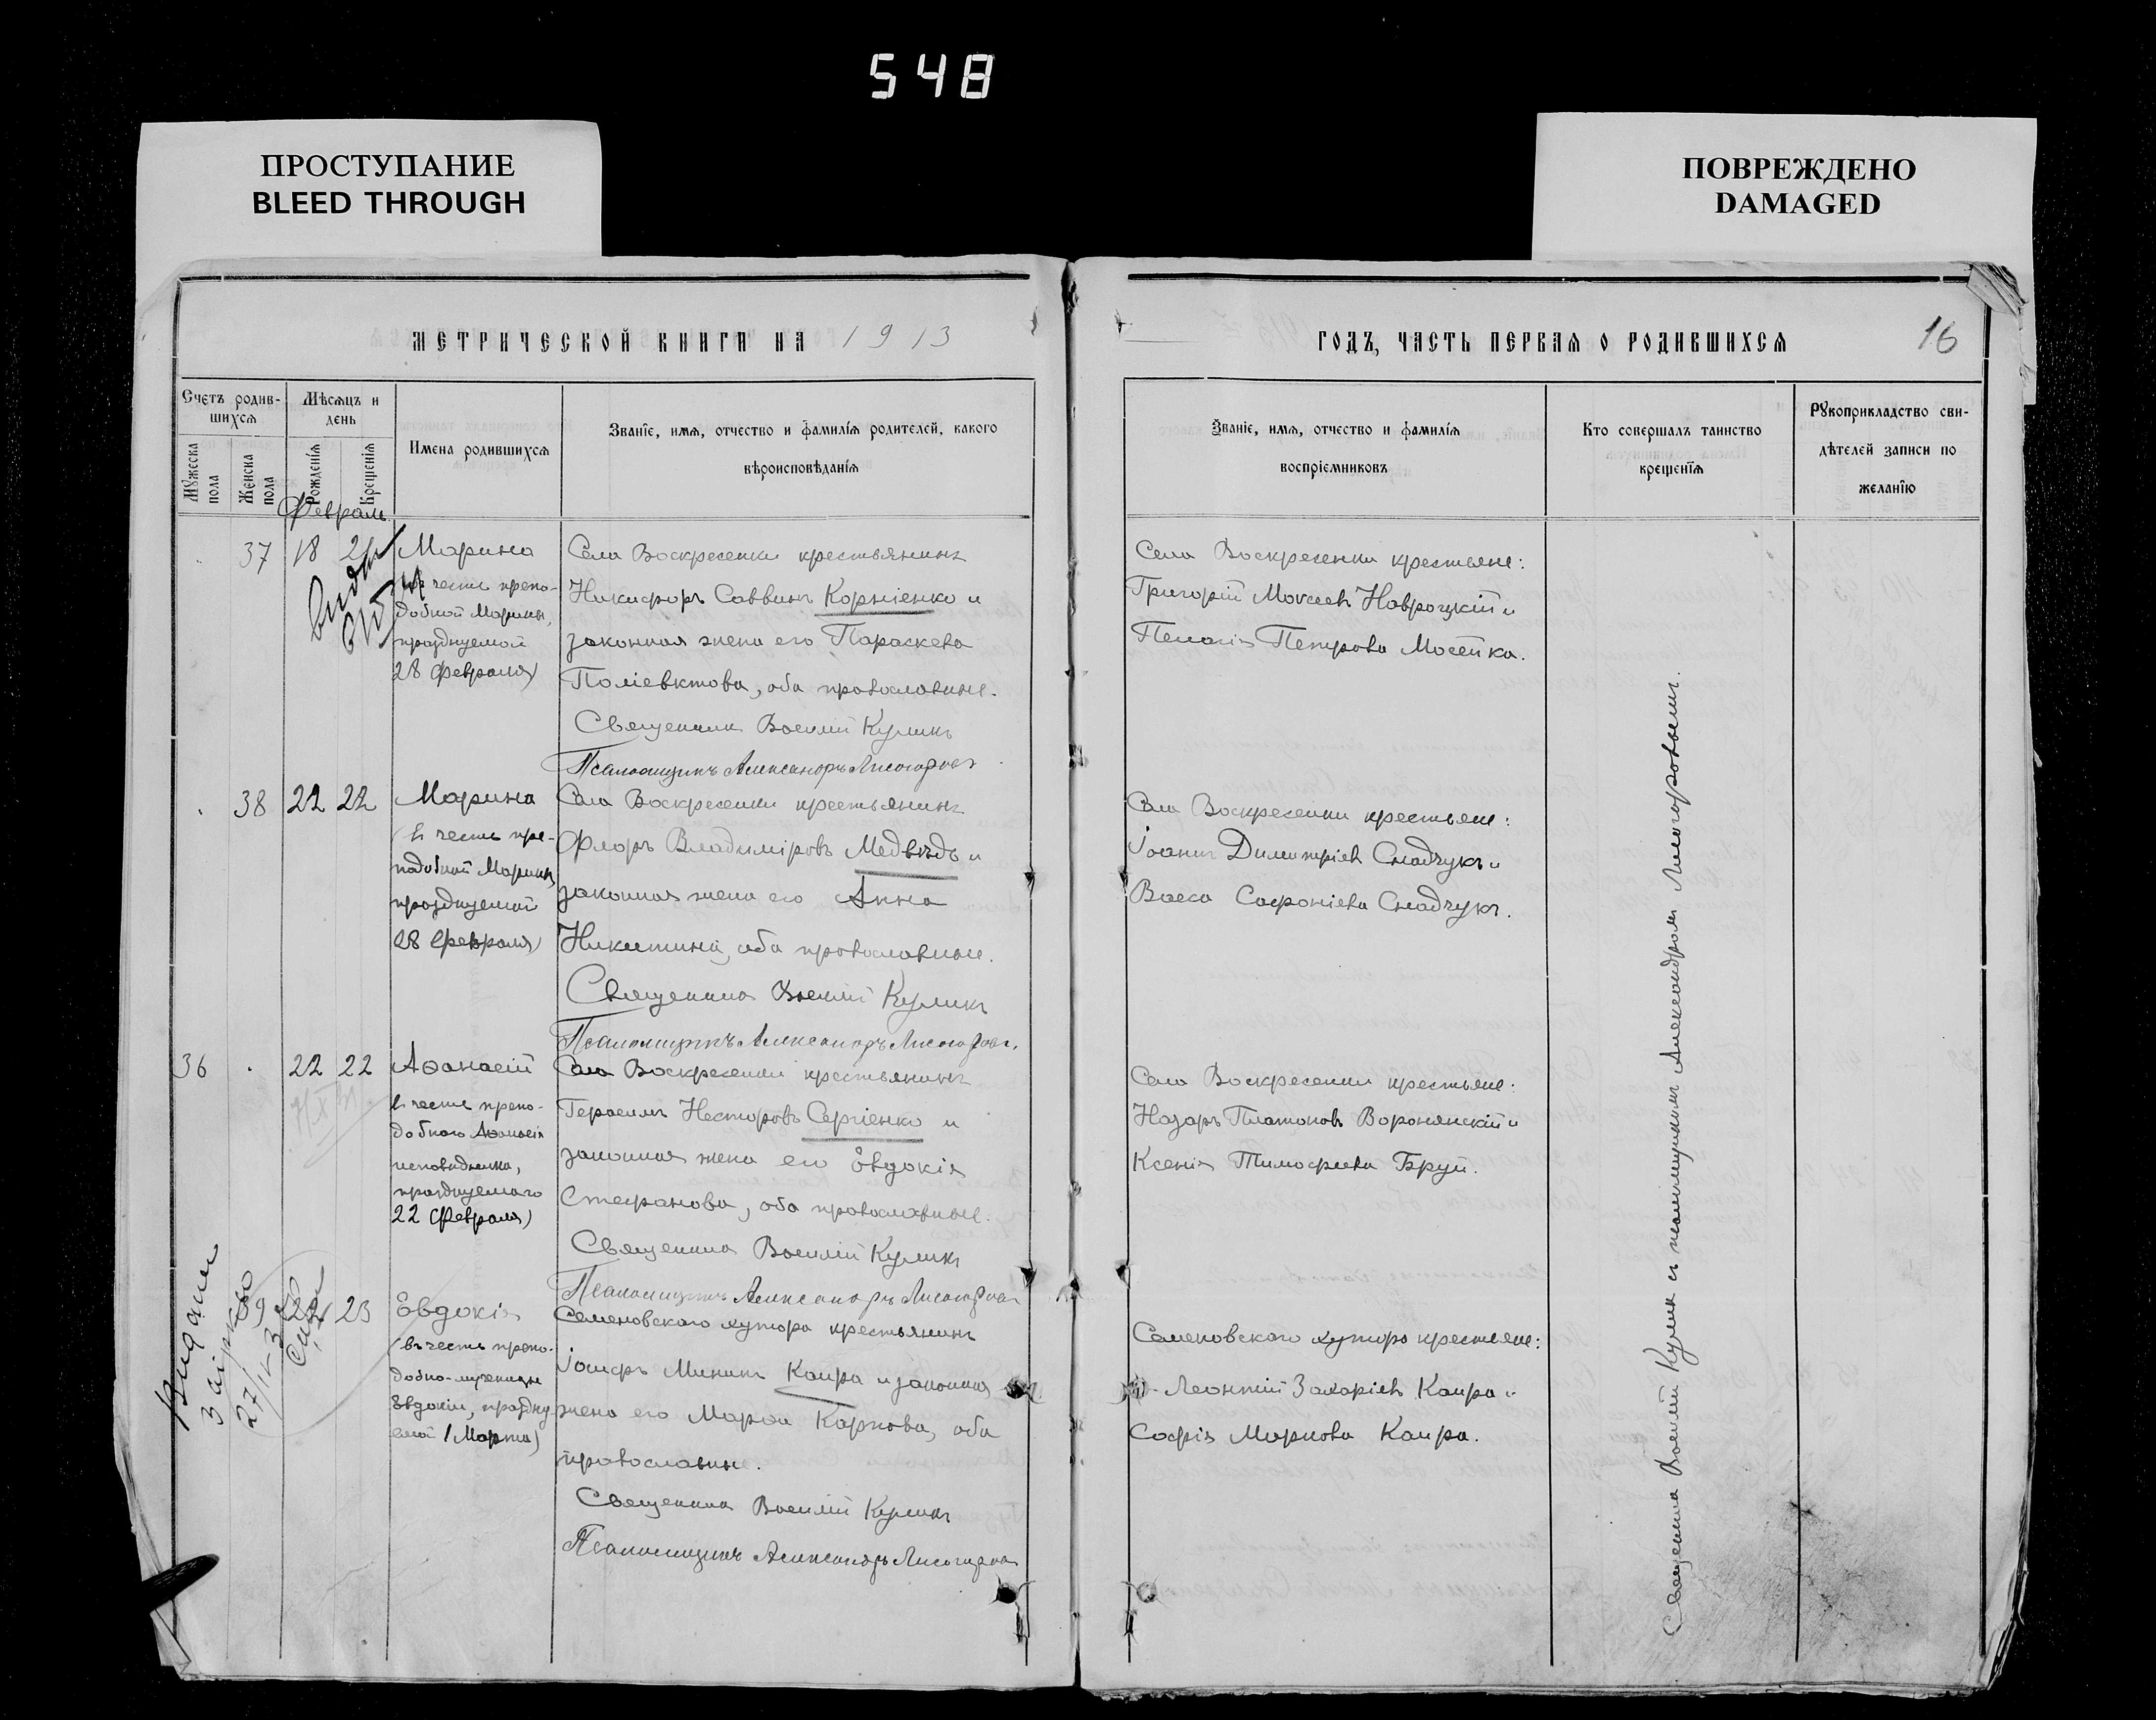 548
ПРОСТУПАНИЕ
BLEED THROUGH
ПОВРЕЖДЕНО
DAMAGED
МЕТРИЧЕСКОЙ КНИГИ НА 1913
ГОДЪ, ЧАСТЬ ПЕРВАЯ О РОДИВШИХСЯ
16
Счетъ родив-
шихся
Мужеска пола
Женска пола
Мѣсяцъ и
день
Рожденія
Крещенія
Имена родившихся
Званіе, имя, отчество и фамилія родителей, какого
вѣроисповѣданія
Званіе, имя, отчество и фамилія
воспріемниковъ
Кто совершалъ таинство
крещенія
Рукоприкладство сви-
дѣтелей записи по
желанію
Февраль
37 18
Марина
въ честь препо-
добной Марины,
празднуемой
28 февраля)
Села Воскресенки крестьянинъ
Никифоръ Саввинъ Корніенко и
законная жена его Параскева
Поліевктова, оба православные.
Священникъ Василій Куликъ
Псаломщикъ Александръ
Села Воскресенки крестьяне:
Григорій Моисеевъ Навроцкій и
Пелагія Петрова Мосейка.
38 22 22
Марина
(въ честь пре-
подобной Марины,
празднуемой
28 февраля)
Села Воскресенки крестьянинъ
Флоръ Владиміровъ Медвѣдь и
законная жена его Анна
Никитина, оба православные.
Священникъ Василій Куликъ
Псаломщикъ Александръ
Села Воскресенки крестьяне:
Іоаннъ Димитріевъ Снадчукъ и
Васса Софоніева Снадчукъ.
36 22 22
Аѳанасій
въ честь препо-
добнаго Аѳанасія
исповѣдника,
празднуемаго
22 февраля)
Села Воскресенки крестьянинъ
Герасимъ Несторовъ Сергіенко и
законная жена его Евдокія
Стефанова, оба православные.
Священникъ Василій Куликъ
Псаломщикъ Александръ
Села Воскресенки крестьяне:
Назаръ Платоновъ Воронянскій и
Ксенія Тимофеева Бруй.
39 22 23
Евдокія
(въ честь препо-
добно-мученицы
Евдокіи, праздну
емой 1 Марта)
Семеновскаго хутора крестьянинъ
Іосифъ Мининъ Каира и законная
жена его Марѳа Карпова, оба
православные.
Священникъ Василій Куликъ
Псаломщикъ Александръ
Семеновскаго хутора крестьяне:
Леонтій Захаріевъ Каира и
Софія Маркова Каира.
Священникъ Василій Куликъ съ псаломщикомъ Александромъ